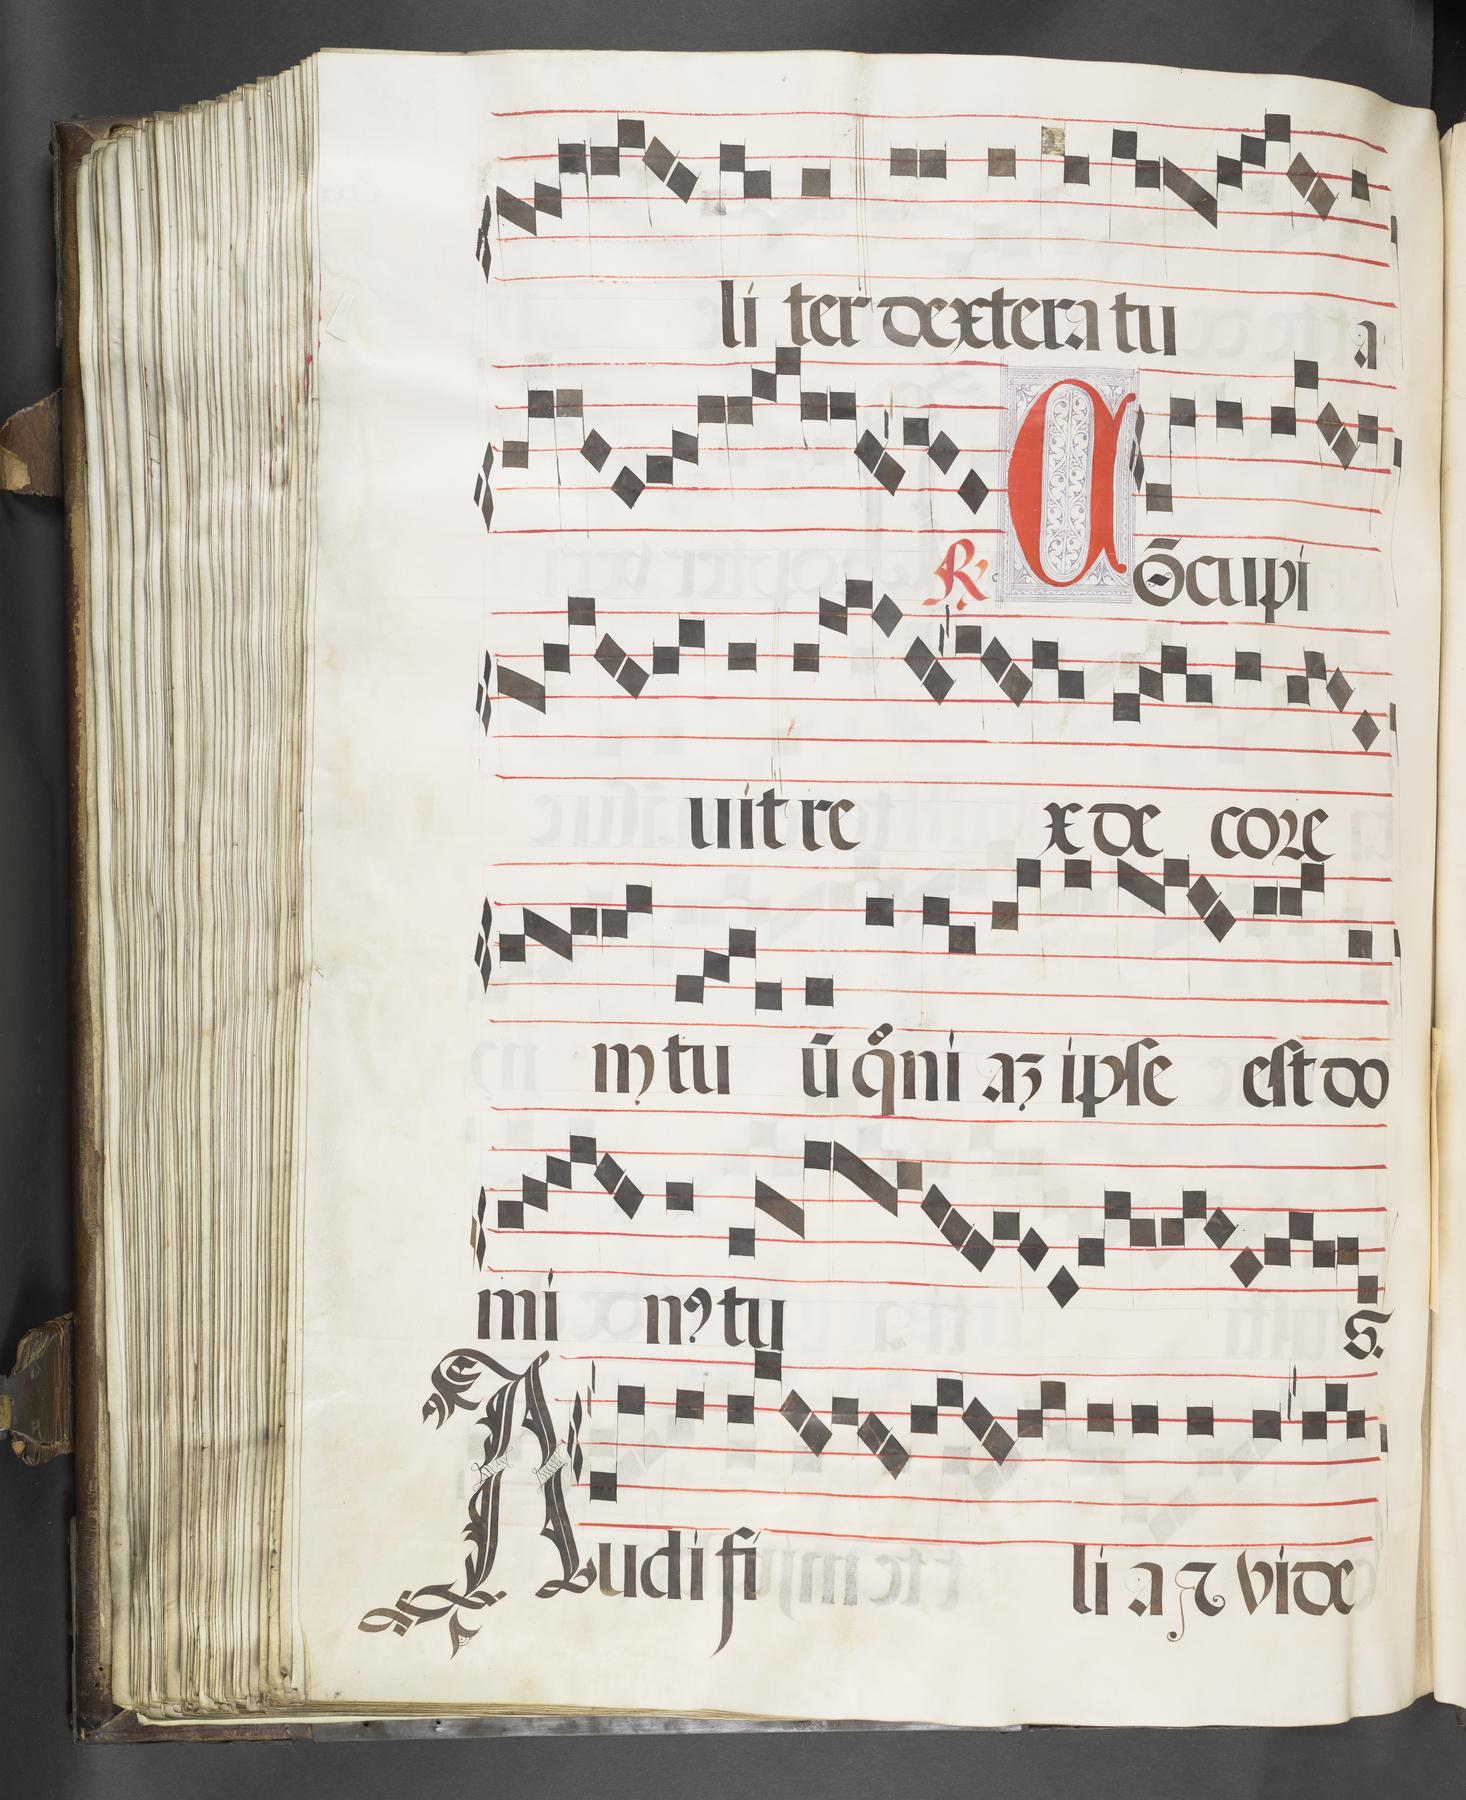 li ter dextera tu a
R. Cōcupi
uit re x de core
m tu ū q̄ni aʒ ipse est do
mi nꝰ tu s.
Audi fi li a ⁊ vide